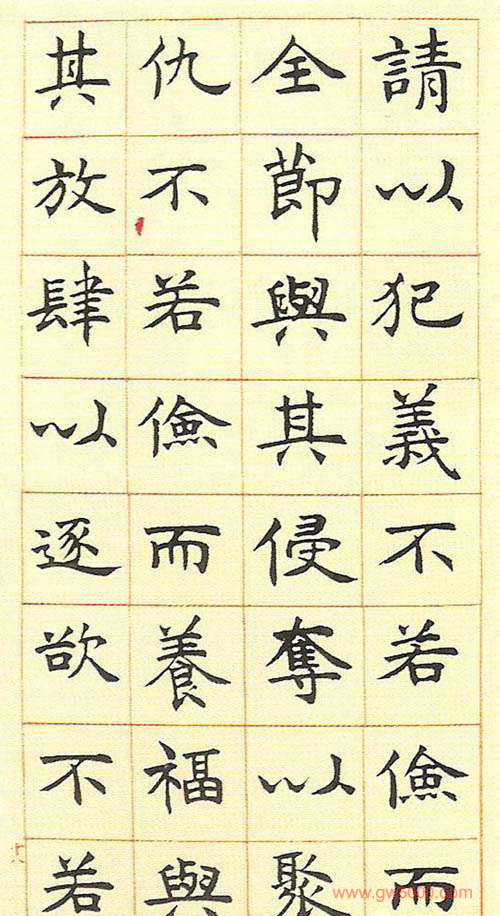 請以犯義不若儉而
全節與其侵奪以聚
仇不若儉而養福與
其放肆以逐欲不若
十八
www.gw5000.com